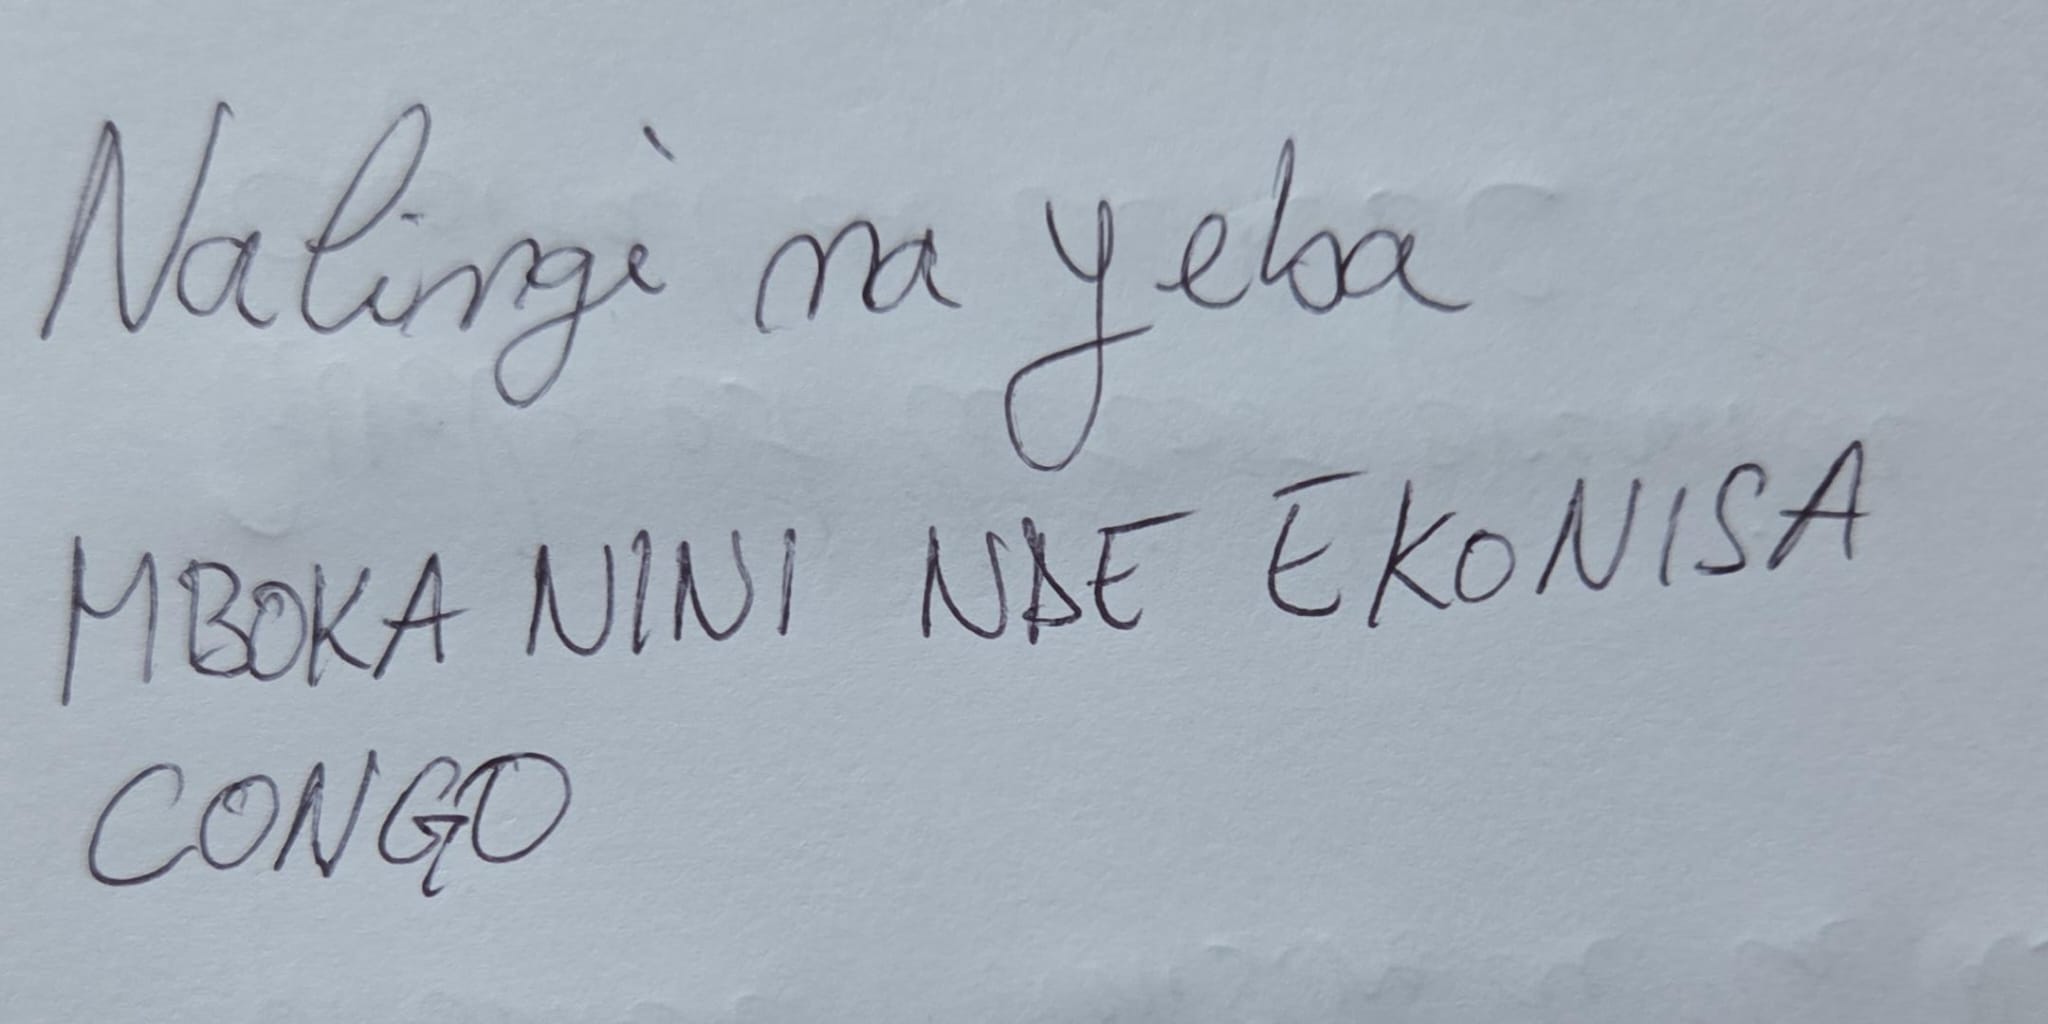 Nalingi na yeba
MBOKA NINI NDE EKONISA
CONGO